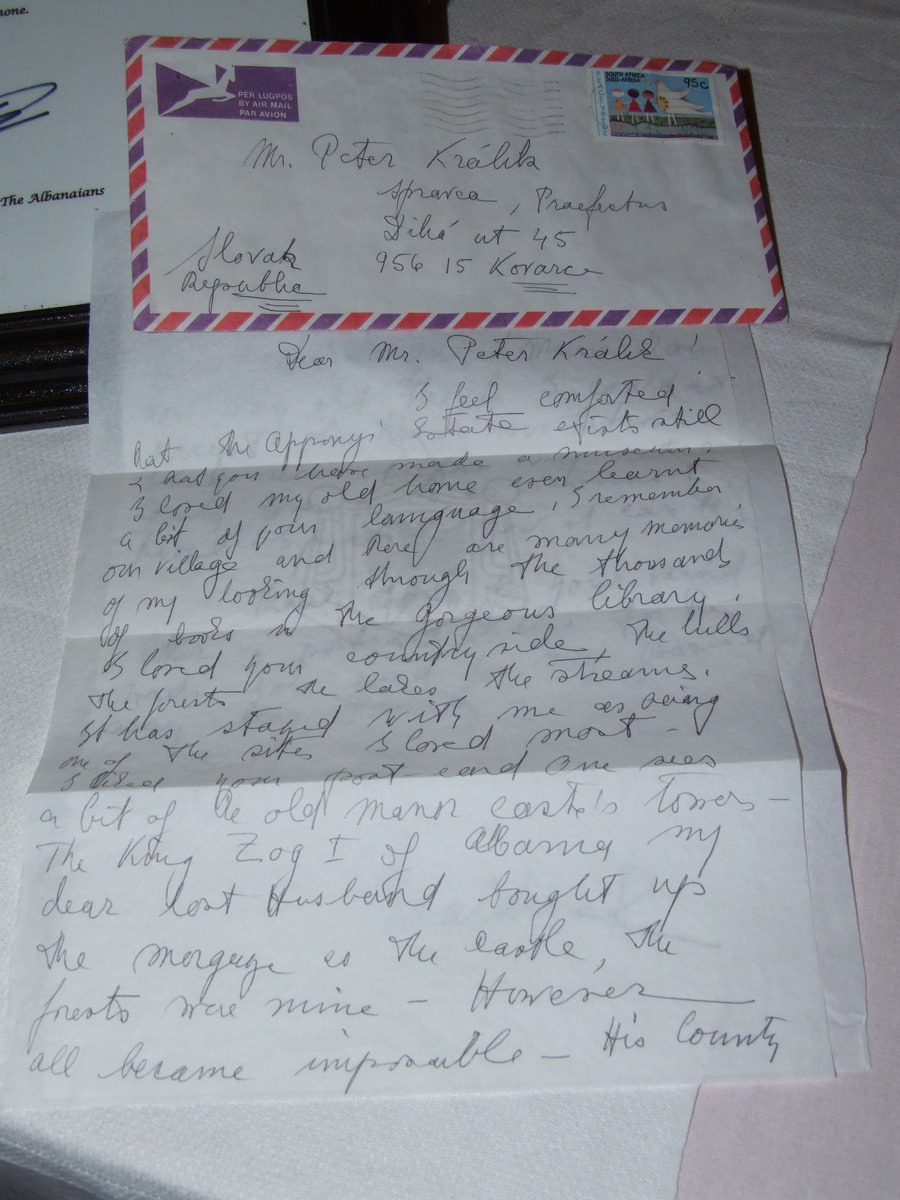 hone.
The Albanaians
PER LUGPOS
BY AIR MAIL
PAR AVION
SOUTH AFRICA
SUID-AFRIKA
95c
Mr. Peter Králik
Spravca, Praefectus
út 45
956 15 Kovarce
Slovak
Republic
Dear Mr. Peter Králik!
I feel comforted
that the Apponyi Estate exists still
& that you have made a museum.
I loved my old home even learnt
a bit of your language, I remember
our village and there are many memories
of my looking through the thousands
of books in the gorgeous library.
I loved your country side, the hills
the forests the lakes the streams.
It has stayed with me as being
one of the sites I loved most –
I liked your post-card one sees
a bit of the old manor castle's towers –
The King Zog I of Albania my
dear lost Husband bought up
the morgage so the castle, the
forests were mine – However
all became impossible – His County